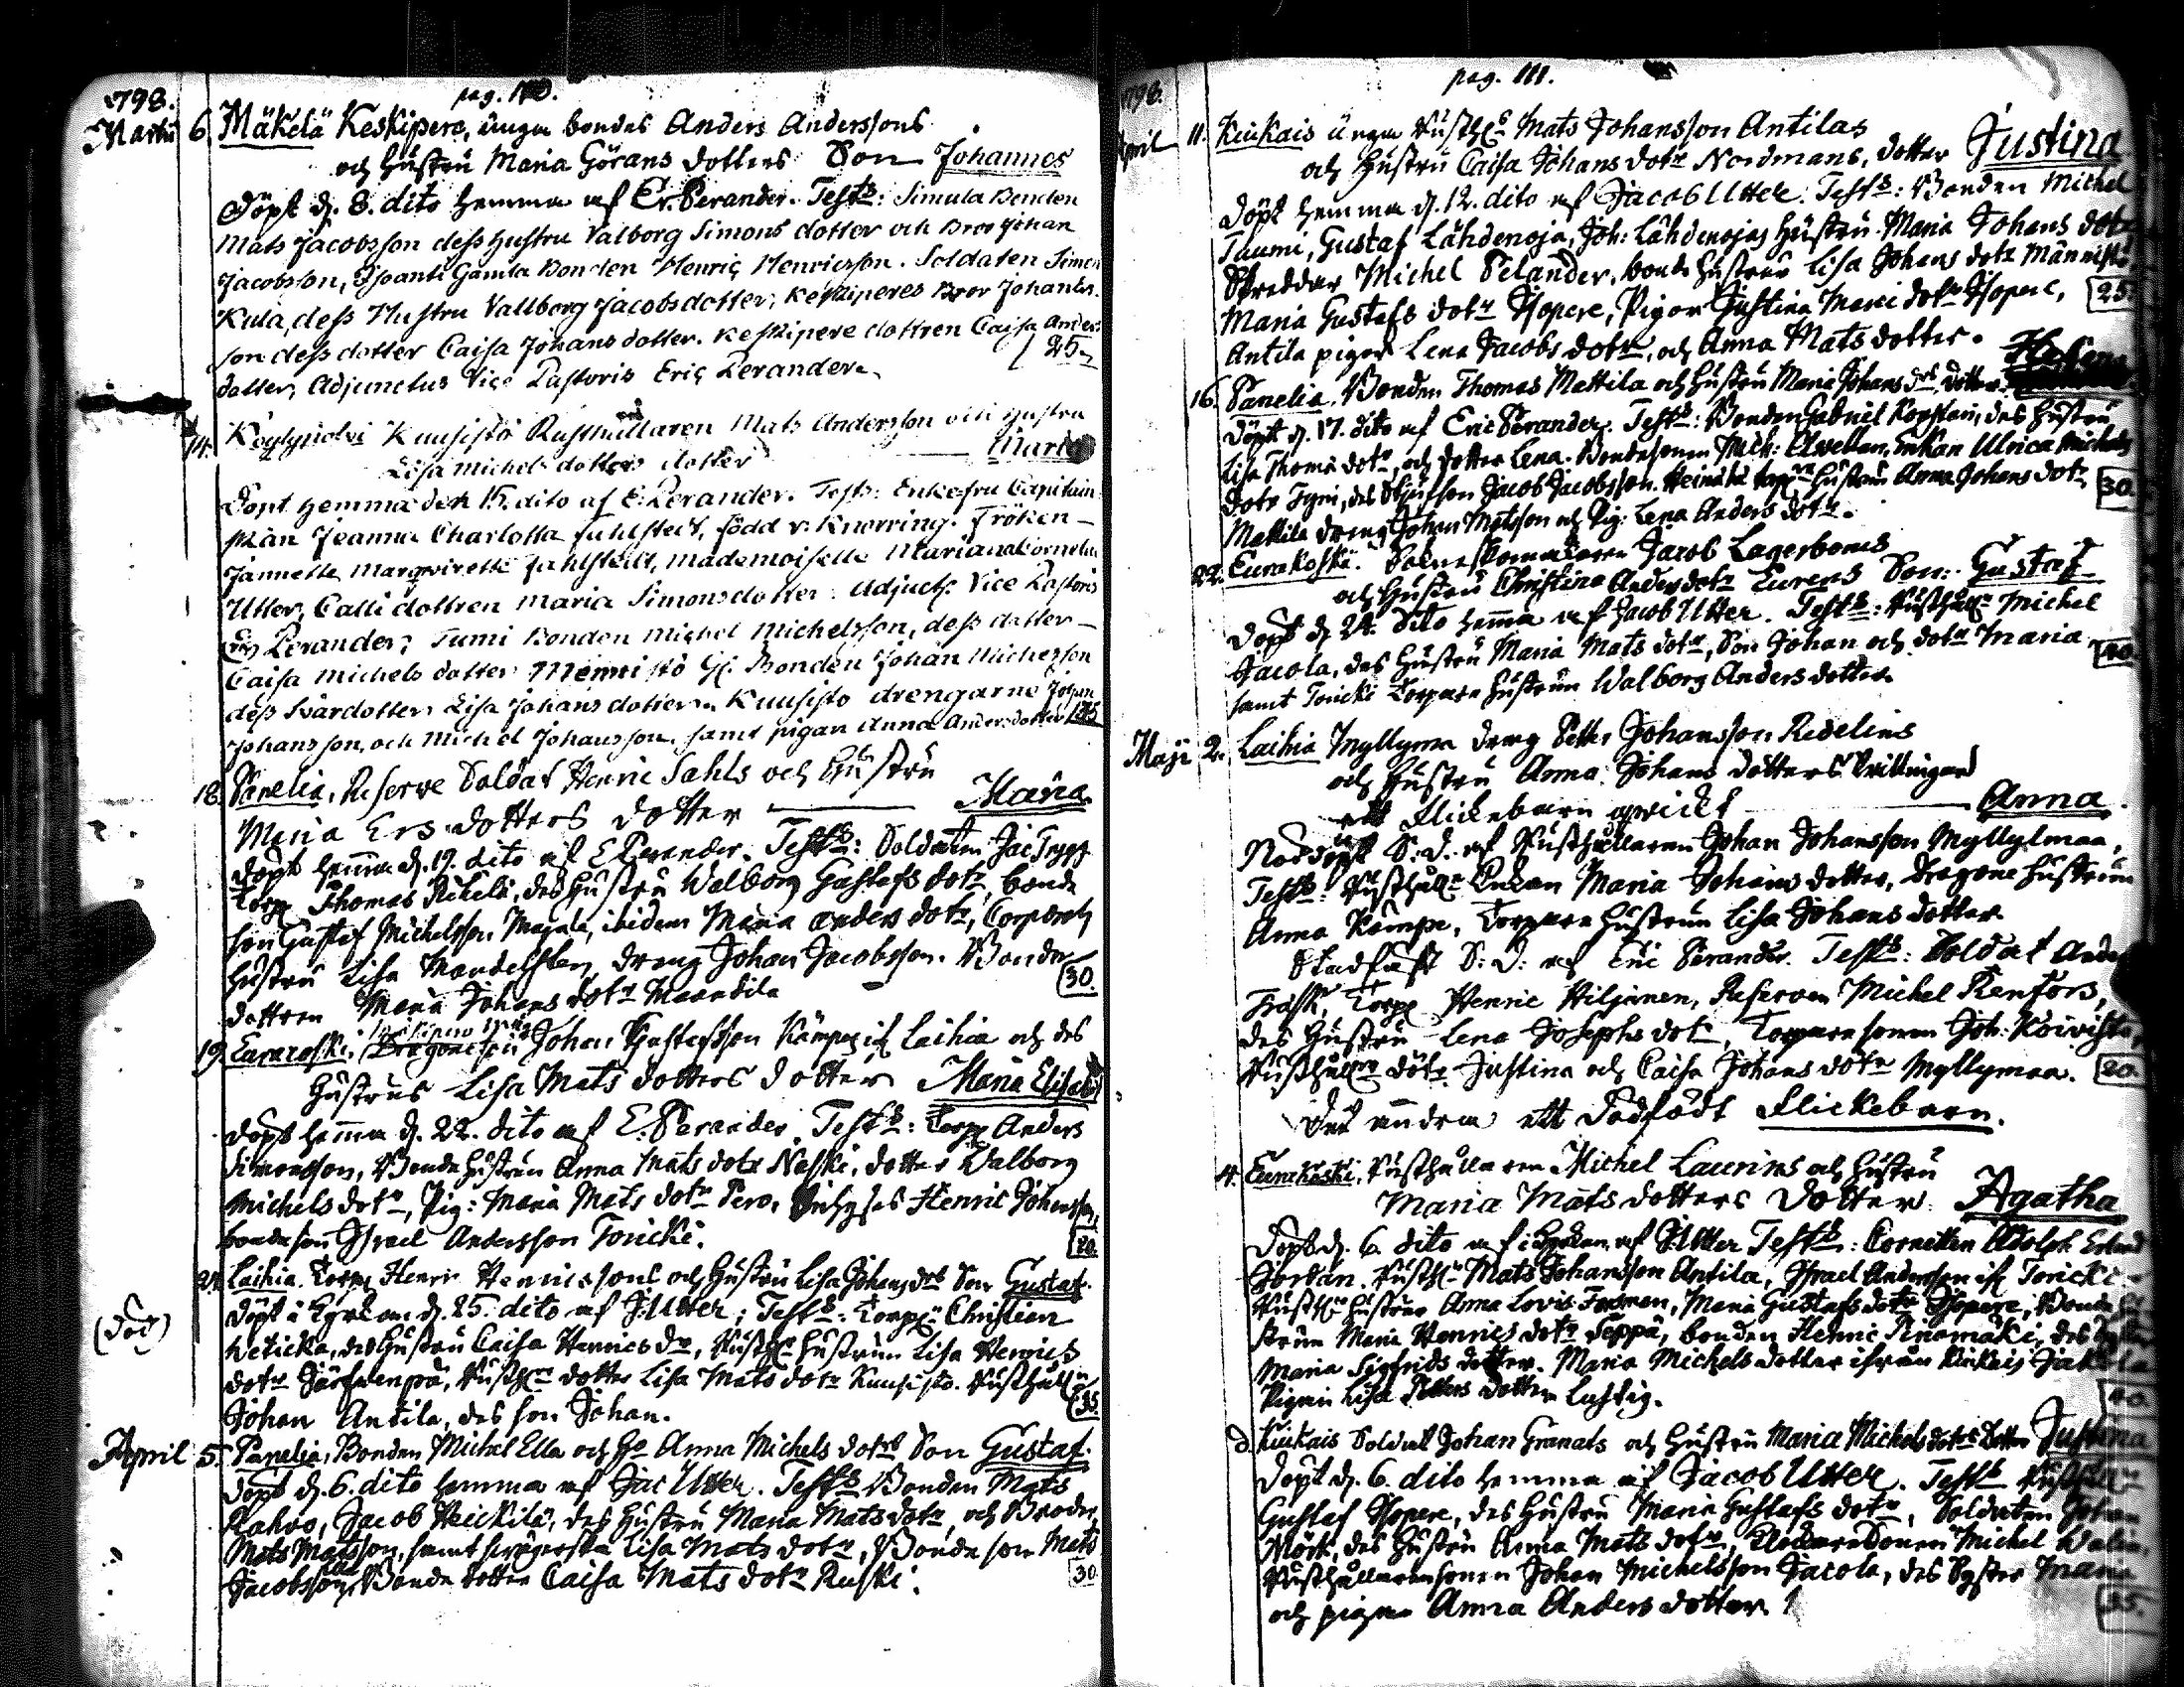 pag. 110.
1798.
Martii 6. Mäkelä Keskipere, unga bondes Anders Anderssons
och hustru Maria Görans dotters Son Johannes
Döpt d. 8. dito hemma af Er. Perander. Test: Simula Bonden
Mats Jacobsson dess hustru Valborg Simons dotter och Bror Johan
Jacobsson, Gamla Bonden Henric Henricsson. Soldaten Simon
Kula, dess Hustru Vallborg Jacobsdotter, Keskiperes Bror Johan Anders-
son dess dotter Caisa Johans dotter. Keskipere dottren Caisa Anders
dotter, Adjunctus Vice Pastoris Eric Perander. 25.
14. Köylypolvi Kuusistö Rusthållaren Mats Andersson och hustru
Lisa Michels dotters dotter Maria
Döpt hemma den 15. dito af E. Perander. Test: Enkefru Capitain-
skan Jeanna Charlotta Fahlstedt, född v. Knorring. Fröken
Jannette Margaretta Fahlstedt, Mademoiselle Mariana Cornelia
Utter, Calli dottren Maria Simonsdotter. Adjunct. Vice Pastoris
Eric Perander; Tumi Bonden Michel Michelsson, dess dotter
Caisa Michels dotter Männistö Bonden Johan Michelsson
dess Svärdotter Lisa Johans dotter. Kuusisto drengarne Johan
Johansson, och Michel Johansson, samt pigan Anna Andersdotter
18. Panelia, Reserve Soldat Henric Sahls och Hustru
Maria Ers dotters dotter Maria
Döpt hemma d. 19. dito af E Perander. Test: Soldaten Jac Trygg
Torp. Thomas Rekelä, des Hustru Walborg Gustafs dotr, bonde
son Gustaf Michelsson Mayala, ibidem Maria Anders dotr, Corporals
hustru Lisa Mandelsten, dreng Johan Jacobsson. Bonde
dottren Maria Johans dotr Maandila 30.
19. Eurakoski, Johan Gustafsson Kämpe if. Laihia och des
Hustrus Lisa Mats dotters dotter Maria Elisabet
Döpt hemma d. 22. dito af E. Perander. Test: Torp. Anders
Simonsson, Bonde hustrun Anna Mats dotr Naski, dotter Walborg
Michels dotr, Pig: Maria Mats dotr Pero, Henric Johansson,
bondeson Israel Andersson Toricki. 20.
Laihia. Torp. Henric Henricssons och hustru Lisa Johans drs Son Gustaf.
(död) Döpt i Kyrkan d. 25. dito af J. Utter; Test: Torp. Christian
Weticka, des hustru Caisa Henrics dr, Rusth. hustrun Lisa Henrics
dotr Järfwenpä, Rusth. dotter Lisa Mats dotr Kuusisto. Rusthåll.
Johan Antila, des son Johan. 35.
April 5. Panelia, Bonden Michel Ella och H. Anna Michels dotrs Son Gustaf.
Döpt d. 6. dito hemma af Jac Utter. Test: Bonden Mats
Rahvo, Jacob Heickilä, des hustru Maria Mats dotr, och Broder
Mats Matsson, samt svägerska Lisa Mats dotr, Bondeson Mats
Jacobsson, Bonde dotter Caisa Mats dotr Ruski. 30
pag. 111.
1798.
April 11. Kiukais unga Rusth. Mats Johansson Antilas
och Hustru Caisa Johans dotr Nordmans, dotter Justina
Döpt hemma d. 12. dito af Jacob Utter. Test: Bonden Michel
Taumi, Gustaf Lähdenoja, Joh: Lähdenojas hustru Maria Johans dotr
Skreddar Michel Selander, bonde hustrun Lisa Johans dotr Männistö
Maria Gustafs dotr Isopere, Pigor Justina Marci dotr Isopere, 25.
Antila pigor Lena Jacobs dotr, och Anna Mats dotter.
16. Panelia. Bonden Thomas Mattila och hustru Maria Johans drs dotter Helena
Döpt d. 17. dito af Eric Perander. Test: Bonden Gabriel, des hustru
Lisa Thomæ dotr, och dotter Lena. Bondesonen Mich: Enkan Ulrica Michels
dotr Tyni, des Stjufson Jacob Jacobsson. Heinikä torp. hustrun Anna Johans dotr 30.
Mattila dreng Johan Matsson och Pig: Lena Anders dotr.
22. Eurakoski. Jacob Lagerboms
och Hustru Christina Anders dotr Eurens Son: Gustaf
Döpt d. 24. dito hemma af Jacob Utter. Test: Rusthåll. Michel
Jacola, des hustru Maria Mats dotr, Son Johan och dotr Maria
samt Toricki Torpare hustrun Walborg Anders dotter. 40.
Maji 2. Laihia Myllymaa dreng Petter Johansson Redelins
och Hustru Anna Johans dotters tvillingar
ett Flickebarn Anna
Nöddöpt S. D. af Rusthållaren Johan Johansson Myllymaa,
Test: Rusthåll. Enkan Maria Johans dotter, Dragone hustrun
Anna Kämpe, Torpare hustrun Lisa Johans dotter.
Stadfäst S: D: af Eric Perander. Test: Soldat Anders
Frisk, Torp. Henric Hiljanen, Reserven Michel Renfors,
des hustru Lena Josephs dotr, Torparesonen Joh: Koivisto,
Rusthåll. dotr. Justina och Caisa Johans dotr Myllymaa. 20.
Det andra ett dödfödt Flickebarn.
4. Eurakoski, Rusthållaren Michel Laurins och Hustru
Maria Mats dotters dotter Agatha
Döpt d. 6. dito i Kyrkan af J. Utter Test: Corneten Adolph Erland
Jordan. Rusth. Mats Johansson Antila, Israel Andersson if. Toricki
Rusth. hustrun Anna Lovis Forsman, Maria Gustafs dotr Isopere, Bonde hu-
strun Maria Henrics dotr Seppä, bonden Henric Rinomäki, des
Maria Sigfrids dotter. Maria Michels dotter ifrån Kiukais Jakola
Pigan Lisa Petters dotter Lustig. 40.
d. Kiukais Soldat Johan Granats och Hustru Maria Michels dotrs dotter Justina
Döpt d. 6. dito hemma af Jacob Utter. Test:
Gustaf Isopere, des Hustru Maria Gustafs dotr, Soldaten Johan
Mörk, des Hustru Anna Mats dotr, Michel Walin,
Rusthållaresonen Johan Michelsson Jacola, des Syster Maria
och pigan Anna Anders dotter. 35.